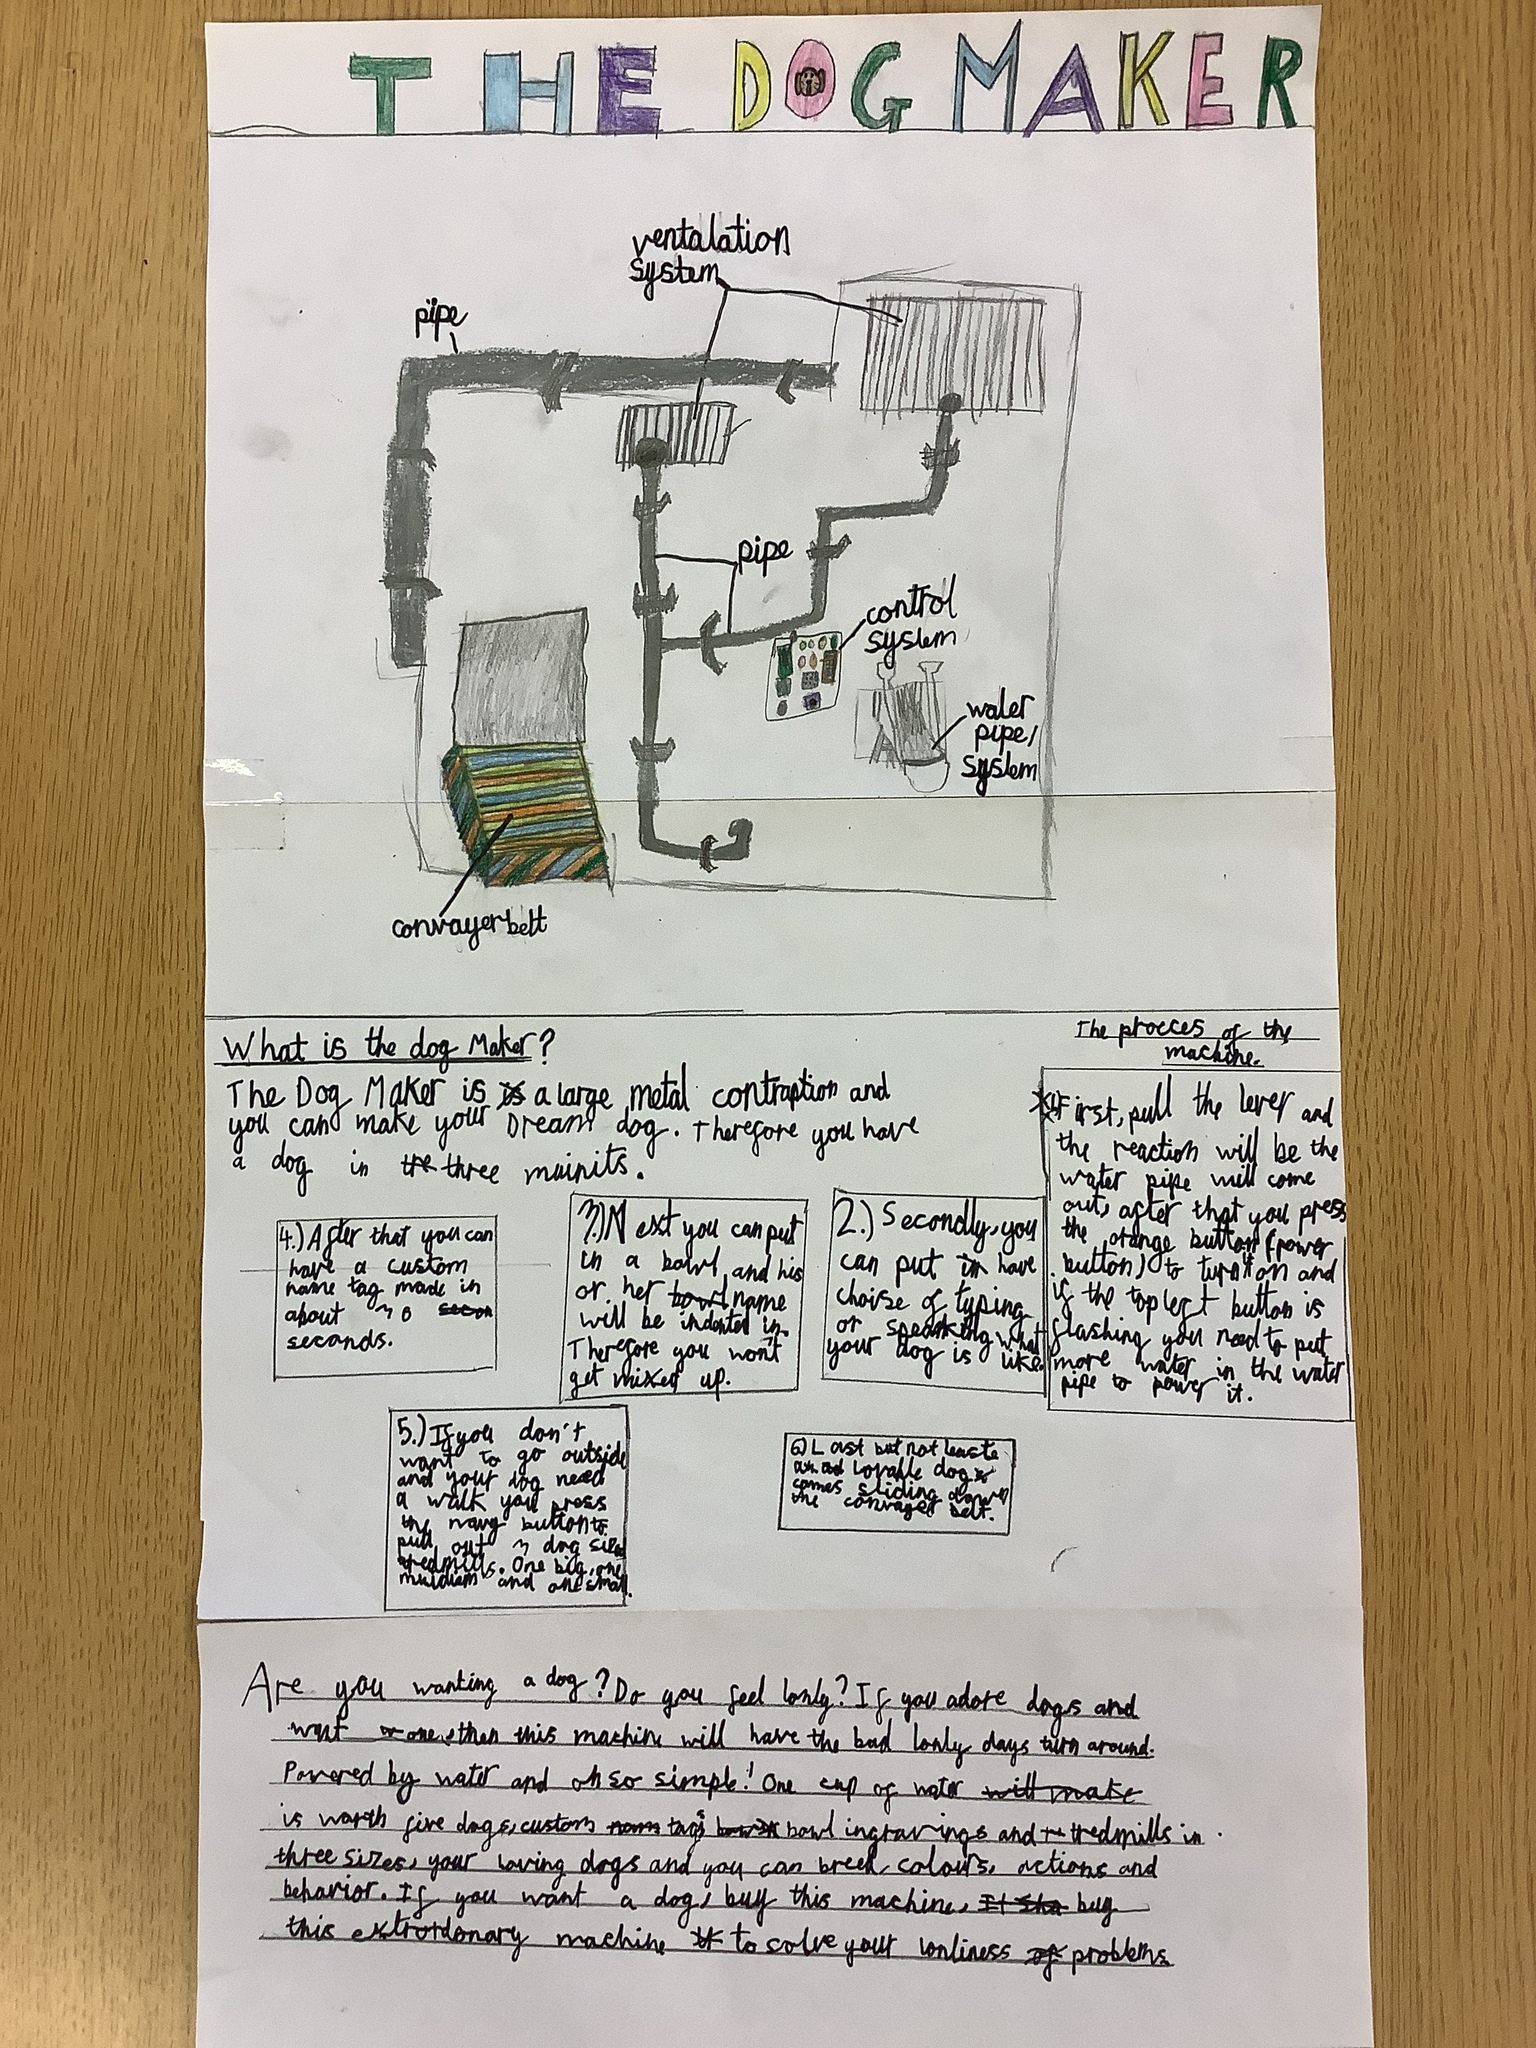 THE DOG MAKER
ventalation
system
pipe
pipe
control
system
water
pipe/
system
convayer belt
What is the dog Maker?
The Dog Maker is a large metal contraption and
you can make your Dream dog. Therefore you have
a dog in three mainits.
The procces of the
machine.
1) First, pull the lever and
the reaction will be the
water pipe will come
out, after that you press
the orange button (power
button) to turn it on and
if the top left button is
flashing you need to put
more water in the water
pipe to power it.
2.) Secondly, you
can put in have
choise of typing
or speaking what
your dog is like.
3.) Next you can put
in a bowl and his
or her name
will be indented in.
Therefore you won't
get mixed up.
4.) After that you can
have a custom
name tag made in
about 30
seconds.
5.) If you don't
want to go outside
and your dog need
a walk you press
the navy button to
pull out 3 dog sized
tredmills. One big, one
muidiam and one small.
6) Last but not leaste
lovable dog
comes sliding down
the convayer belt.
Are you wanting a dog? Do you feel lonly? If you adore dogs and
want one, then this machine will have the bad lonly days turn around.
Powered by water and oh so simple! One cup of water
is worth five dogs, custom tags bowl ingravings and tredmills in
three sizes, your loving dogs and you can breed, colours, actions and
behavior. If you want a dog, buy this machine, buy
this extrordonary machine to solve your lonliness problems